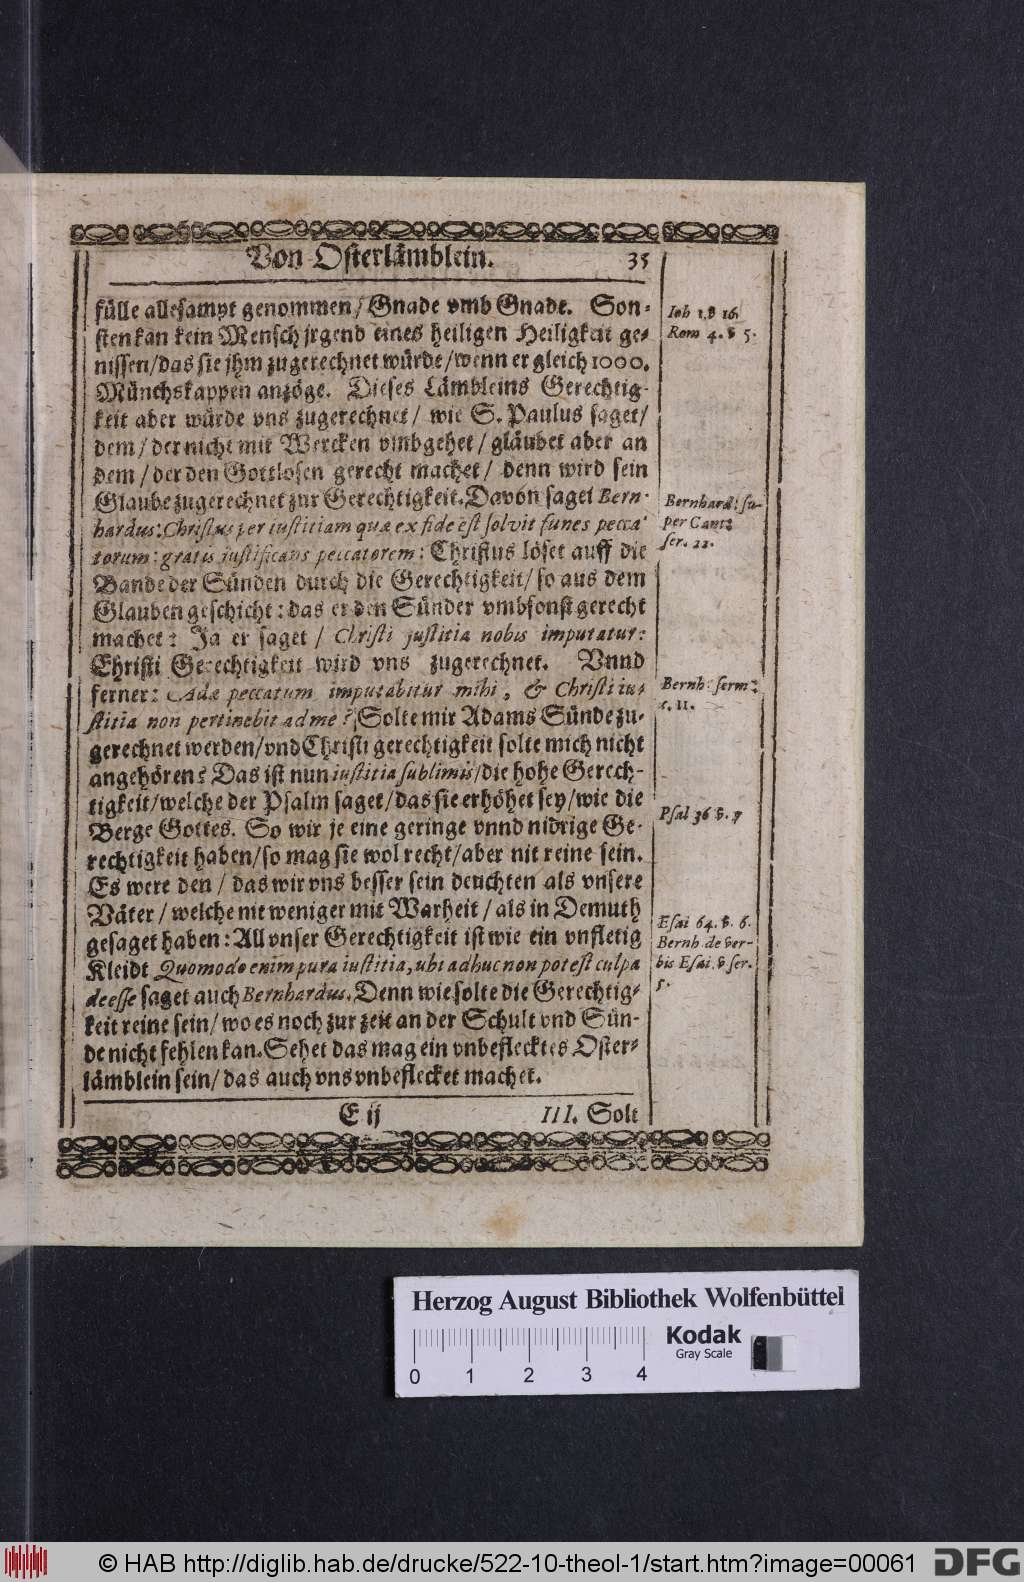 Von Osterlämblein. 35
fülle allesampt genommen / Gnade vmb Gnade. Son-
sten kan kein Mensch jrgend eines heiligen Heiligkeit ge-
nissen / das sie jhm zugerechnet würde / wenn er gleich 1000.
Münchskappen anzöge. Dieses Lämbleins Gerechtig-
keit aber würde vns zugerechnet / wie S. Paulus saget /
dem / der nicht mit Wercken vmbgehet / gläubet aber an
dem / der den Gottlosen gerecht machet / denn wird sein
Glaube zugerechnet zur Gerechtigkeit. Davon saget Bern-
hardus: Christus per iustitiam quæ ex fide est solvit funes pecca-
torum: gratis justificans peccatorem: Christus löset auff die
Bande der Sünden durch die Gerechtigkeit / so aus dem
Glauben geschicht: das er den Sünder vmbsonst gerecht
machet: Ja er saget / Christi justitia nobis imputatur:
Christi Gerechtigkeit wird vns zugerechnet. Vnnd
ferner: Adæ peccatum imputabitur mihi, & Christi iu-
stitia non pertinebit ad me? Solte mir Adams Sünde zu-
gerechnet werden / vnd Christi gerechtigkeit solte mich nicht
angehören? Das ist nun iustitia sublimis / die hohe Gerech-
tigkeit / welche der Psalm saget / das sie erhöhet sey / wie die
Berge Gottes. So wir je eine geringe vnnd nidrige Ge-
rechtigkeit haben / so mag sie wol recht / aber nit reine sein.
Es were den / das wir vns besser sein deuchten als vnsere
Väter / welche nit weniger mit Warheit / als in Demuth
gesaget haben: All vnser Gerechtigkeit ist wie ein vnfletig
Kleidt Quomodo enim pura iustitia, ubi adhuc non potest culpa
deesse saget auch Bernhardus. Denn wie solte die Gerechtig-
keit reine sein / wo es noch zur zeit an der Schult vnd Sün-
de nicht fehlen kan. Sehet das mag ein vnbeflecktes Oster-
lämblein sein / das auch vns vnbeflecket machet.
E ij III. Solt
Ioh 1. v 16.
Rom 4. v 5.
Bernhard: su-
per Cant:
ser. 22.
Bernh: serm:
Psal 36 v. 7
Esai 64. v. 6.
Bernh. de ver-
bis Esai. v ser.
5.
Herzog August Bibliothek Wolfenbüttel
Kodak
Gray Scale
0 1 2 3 4
© HAB http://diglib.hab.de/drucke/522-10-theol-1/start.htm?image=00061
DFG